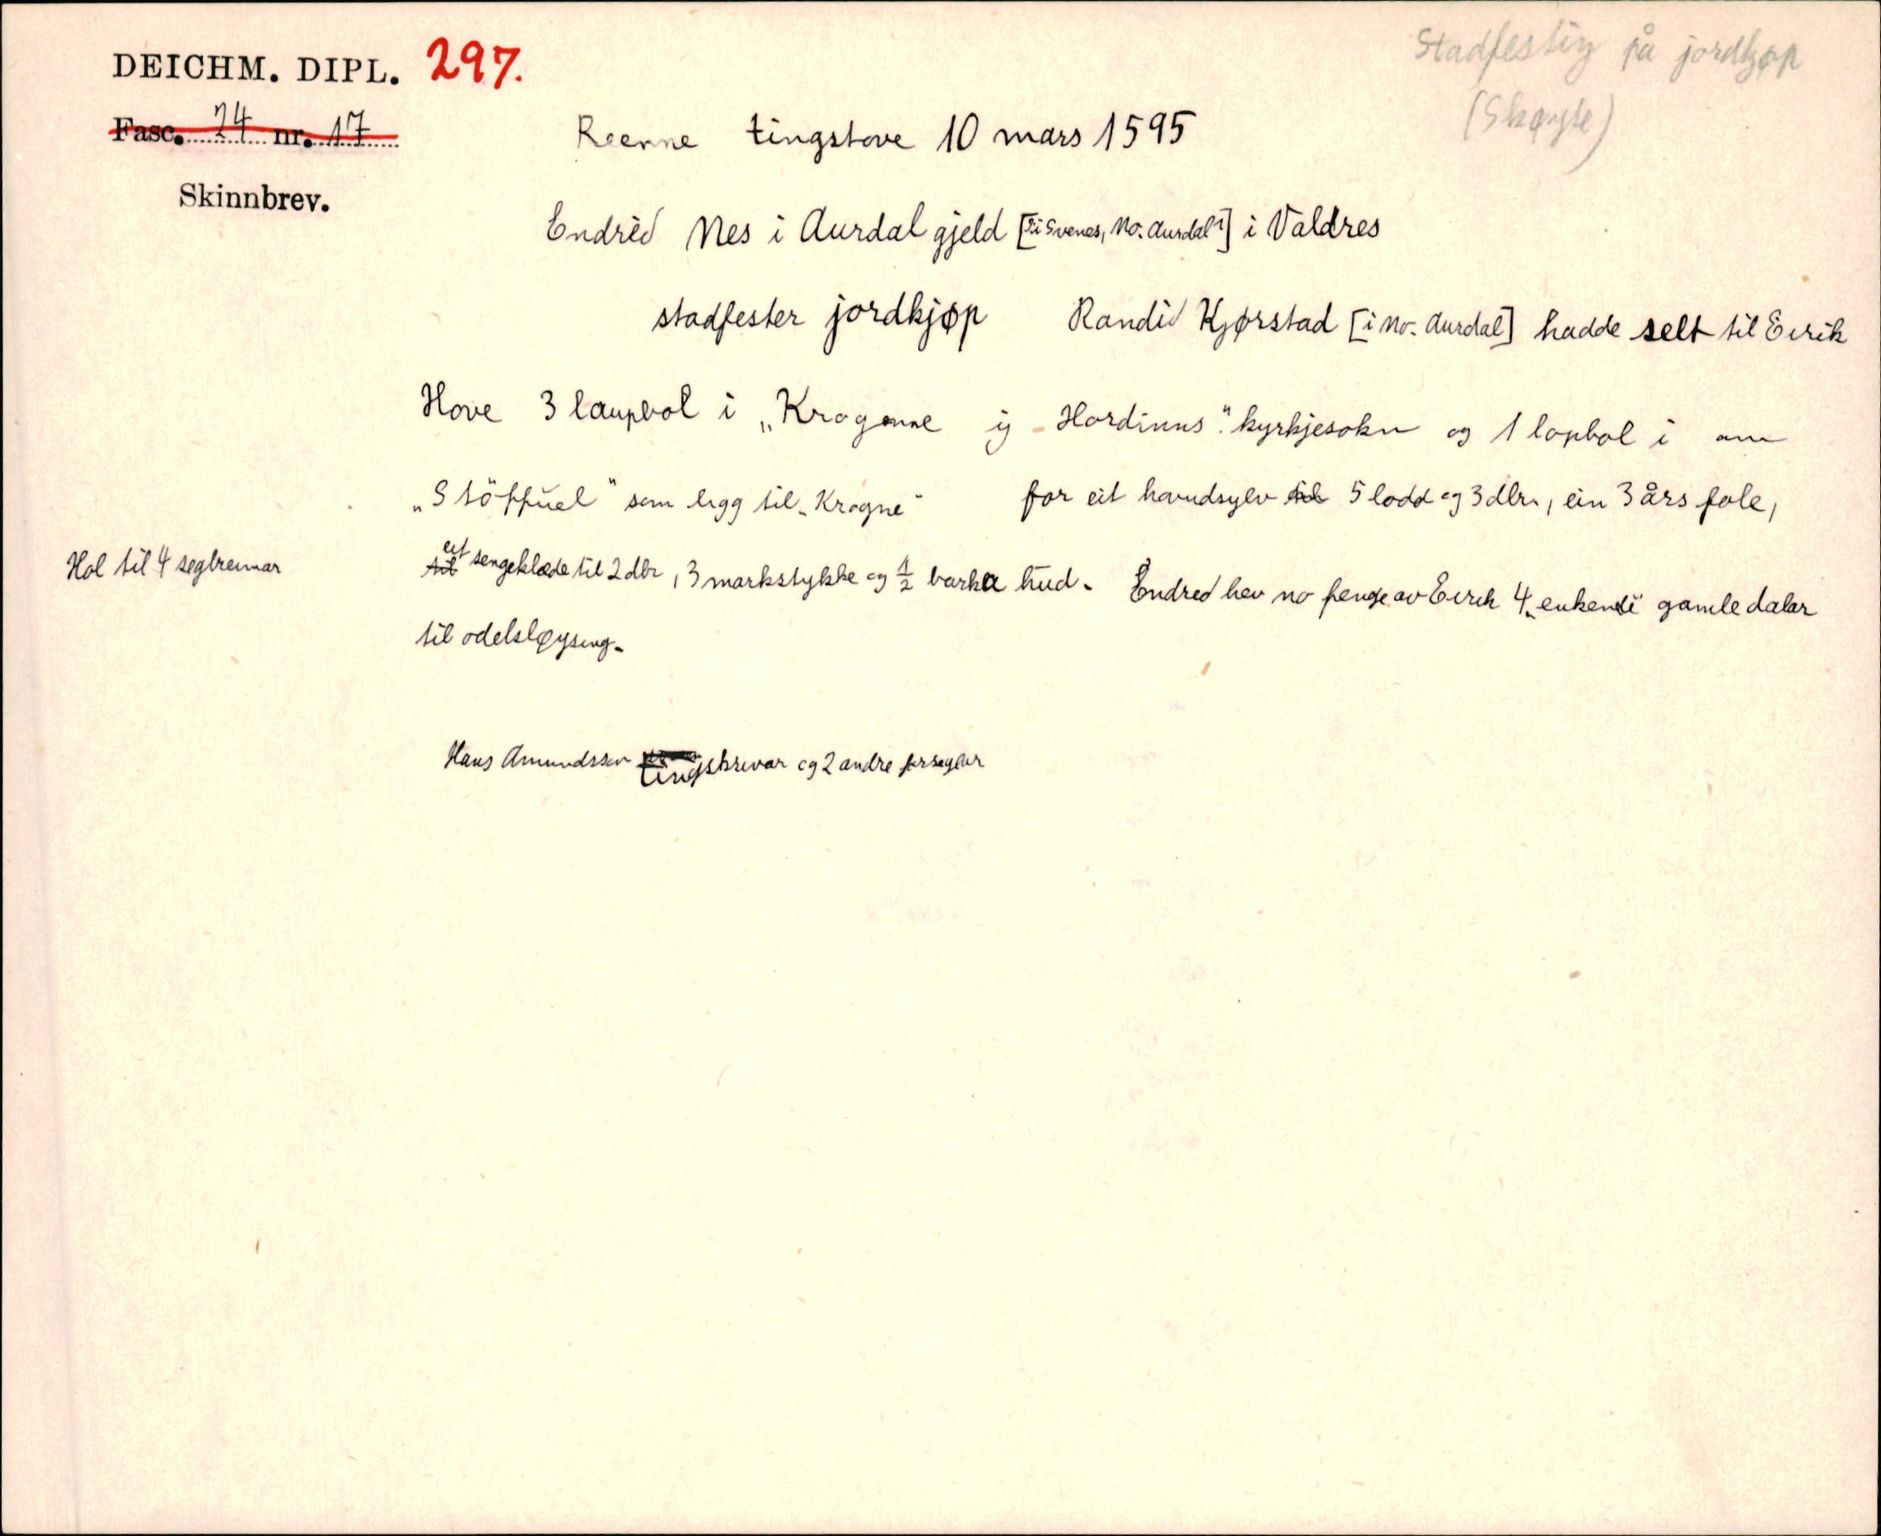 DEICHM. DIPL. 297.
Stadfestig på jordkjøp
(Skøyte)
Fasc. 24 nr. 17
Reenne tingstove 10 mars 1595
Skinnbrev.
Endrid Nes i Aurdal gjeld [?: i Svenes, No. Aurdal?] i Valdres
stadfester jordkjøp Randid Kjørstad [i No. Aurdal] hadde selt til Eirik
Hove 3 laupbol i „Krogenne ij Hordinns“ kyrkjesokn og 1 lopbol i
„Stöffuel“ som ligg til „Krogne“ for eit havudsylv til 5 lodd og 3 dlr., ein 3 års fole,
Hol til 4 seglreimar
til eit sengeklæde til 2 dlr, 3 markstykke og 1/2 barka hud. Endred hev no fenge av Eirik 4 „enkende“ gamle dalar
til odelsløysing.
Hans Amundssen tingskrivar og 2 andre forseglar